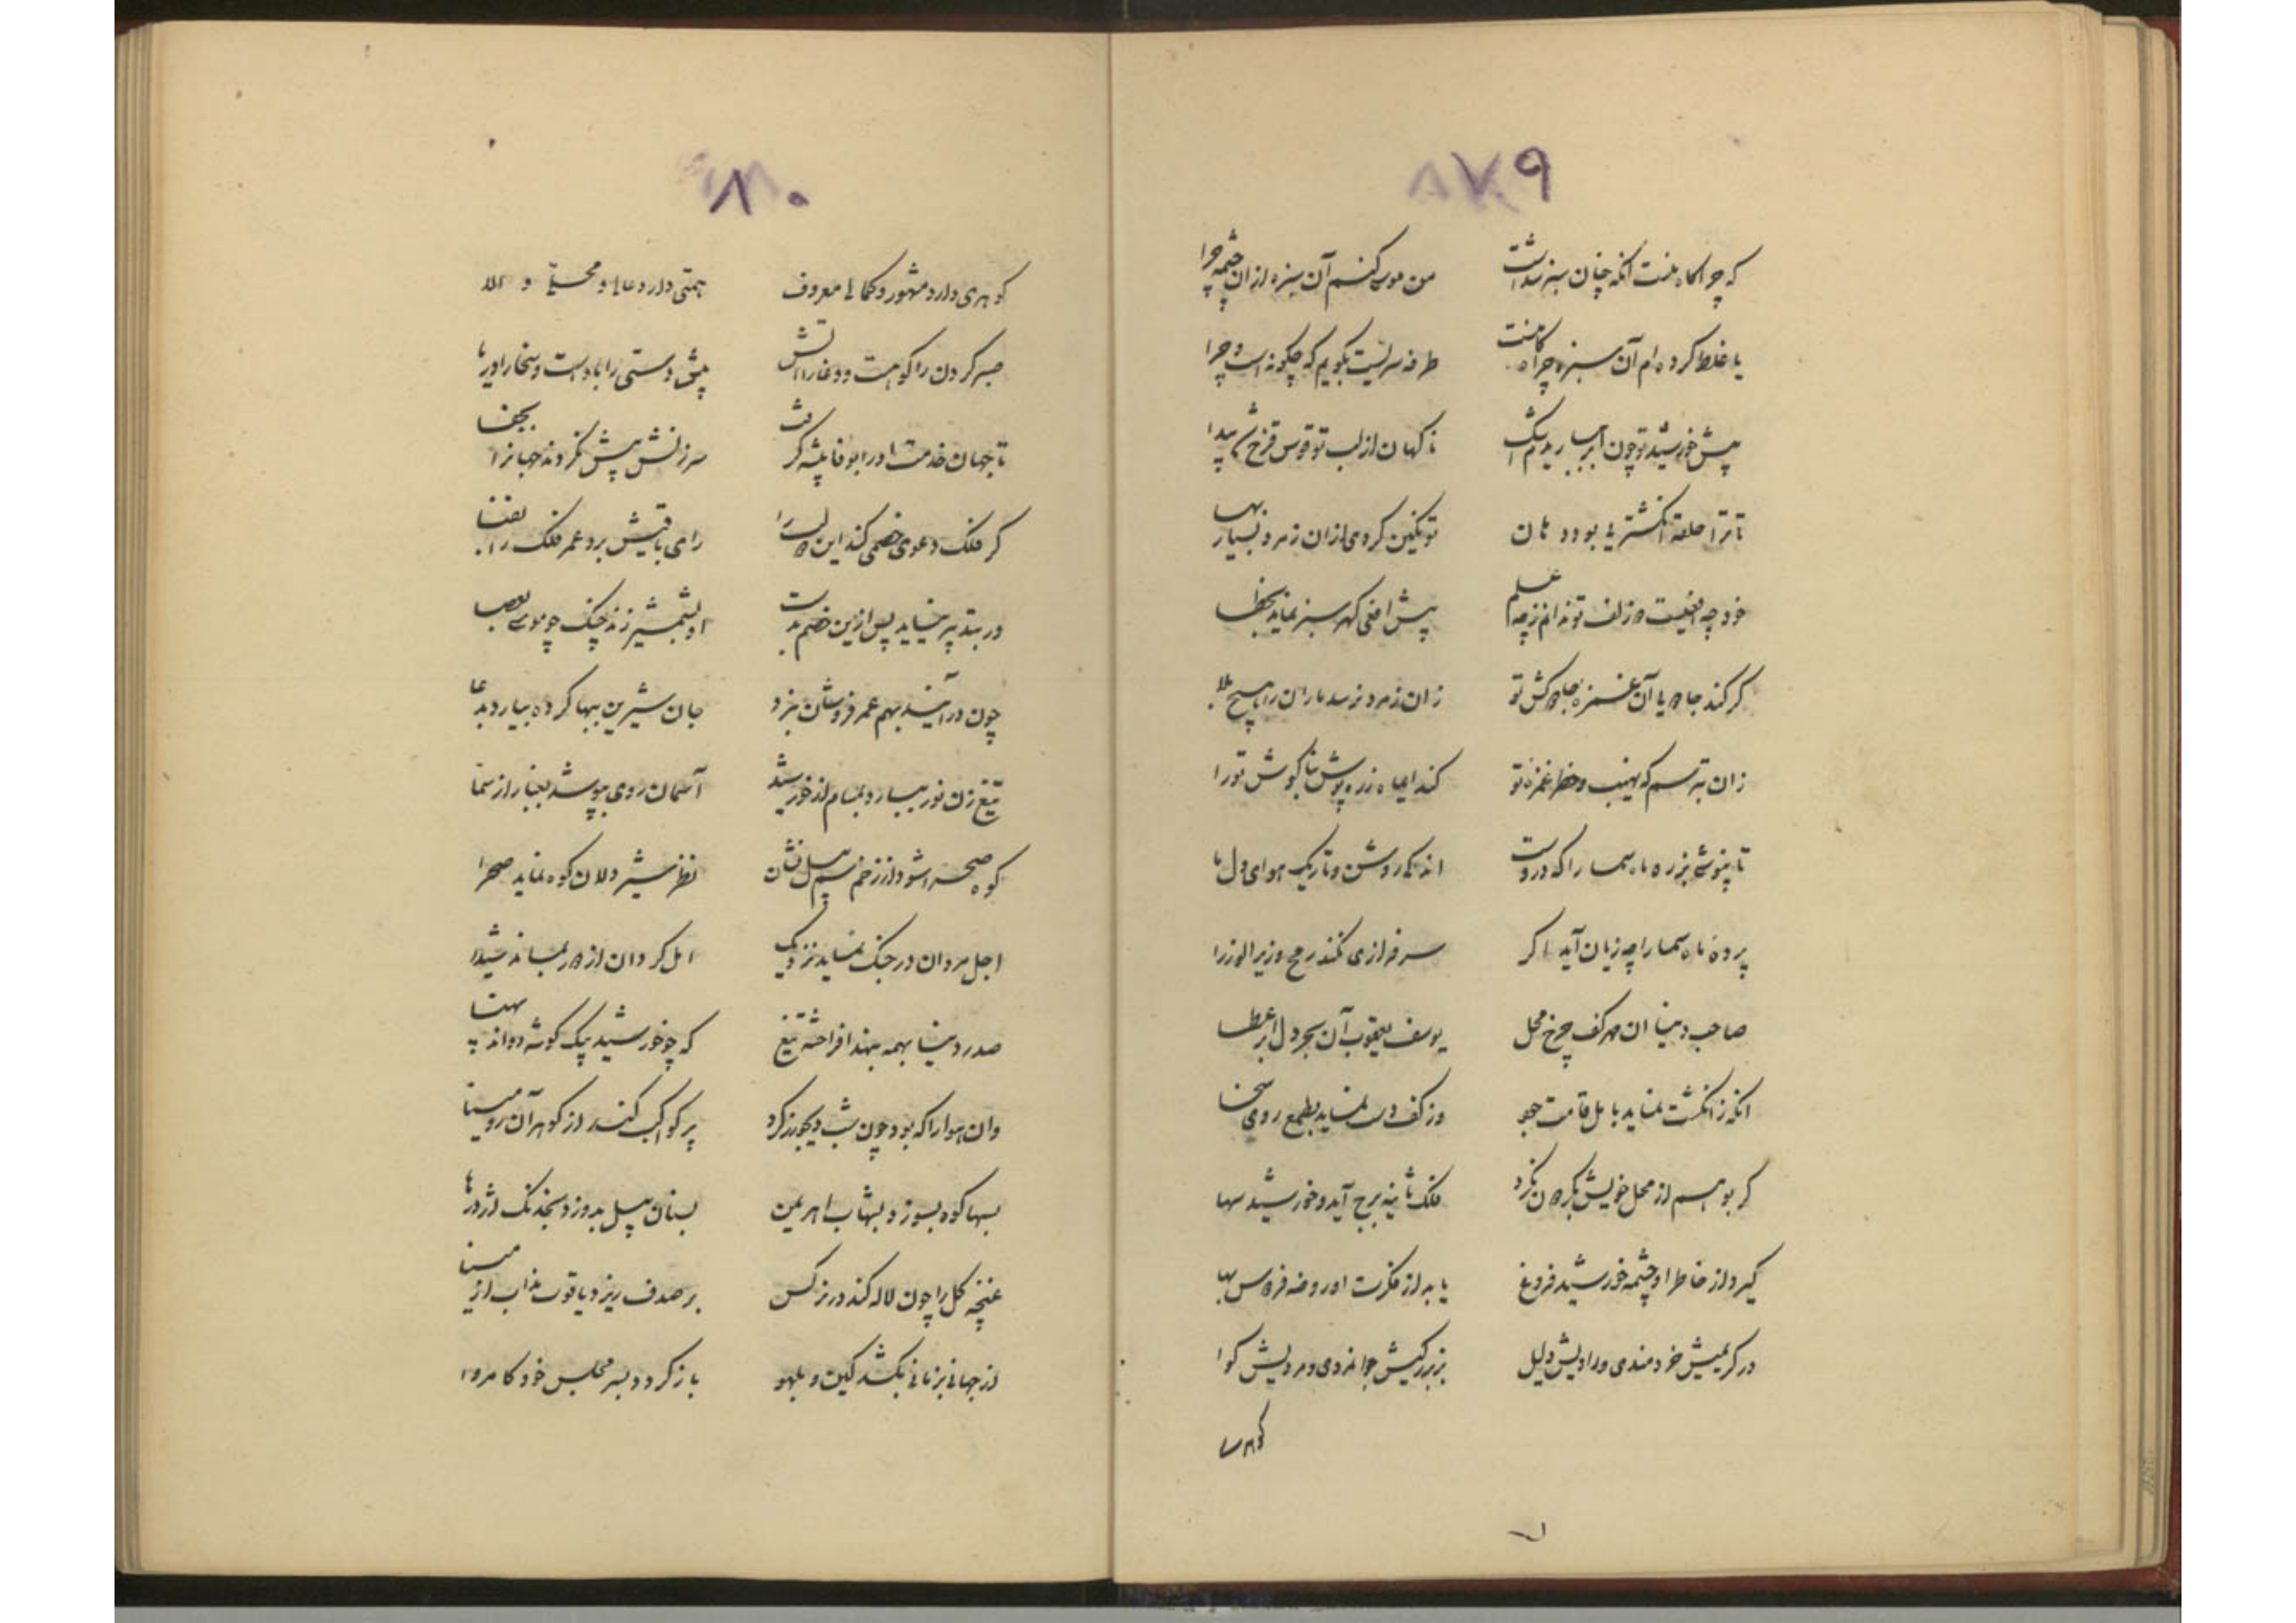 ۷۹
که چراگاه منست آنکه چنان سبز شداست من همی کنم آن سبزه از آن چشمه چرا
یا غلط کرده‌ام آن سبزه چراگاه منست طرفه سریست بگویم که چگونه است و چرا
پیش خورشید تو چون ابر ببارید سرشک ناگهان از لب تو قوس قزح شد پیدا
تا ترا حلقه انگشتری بود دهان تو نگین کردی از آن زمرد بسیار بها
خود چه افعیست زلف تو ندانم ز چه علم پیش افعی گهر سبز نماید بخطا
گر کند جادویا آن غمزه جادوکش تو زان زمرد نرسد ماران را هیچ بلا
زان بترسم که نهیب و خطر غمزه تو کند ای ماه زره پوش بناگوش تو را
تا نپوشی بزره ماه سما را که دروست اندکی روشن و تاریک هوای دل ما
پرده ماه سما را چه زیان آید اگر سرفرازی نکند رمح وزیر الوزرا
صاحب دنیا آن مهر کف چرخ محل یوسف یعقوب آن بحر دل ابر عطا
آنکه ز انگشت نماید بامل قامت جود وز کف دست نماید بطمع روی سخا
گر بوهم از محل خویش بگردون نگرد فلک ثانیه برج آید و خورشید سها
گیرد از خاطر او چشمه خورشید فروغ یابد از فکرت او روضه فردوس بها
در کریمیش خردمندی و رادیش دلیل بر بزرگیش جوانمردی و مردیش گوا
گوهر
۸۰
گوهری دارد مشهور و کمالی معروف همتی دارد عالی و محلی والا
صبر کردن را کوهست و وغا را آتش پیش دستی را باد است و سخا را دریا
تا جهان خدمت او را بوفا پیشه گرفت سرزنش بیش نکردند جهان را بجفا
گر فلک دعوی خصمی کند این والا را رای باقیش برد عمر فلک را بفنا
ور بتدبیر نیاید پس ازین خصم بدست او بشمشیر زند چنگ چو موسی بعصا
چون در آیند بهم عمر فروشان نبرد جان شیرین ببها کرده بیارد بدعا
تیغ زن نور بیارد بمیان از خورشید آسمان روی بپوشد بغبار از سما
کوه صحرا شود از زخم سم پیل نشان نظر شیردلان کوه نماید صحرا
اجل مردان در جنگ نماید نزدیک امل گردان از دور نماید شیدا
صدر دنیا بهمه بهند افراخته تیغ که چو خورشید بیک گوشه دواند بهتا
وان هوا را که بود چون شب دیجور ز گرد پر کواکب کند از گوهر آن رو مینا
بسها کوه بسوزد بشهاب اهریمن بسنان پیل بدوزد بخدنگ اژدرها
غنچه گل را چون لاله کند در نرگس بر صدف ریزد یاقوت مذاب از مینا
از جهانی بزمانی بکشد کین و بلهو باز گردد بسر مجلس خود کامروا